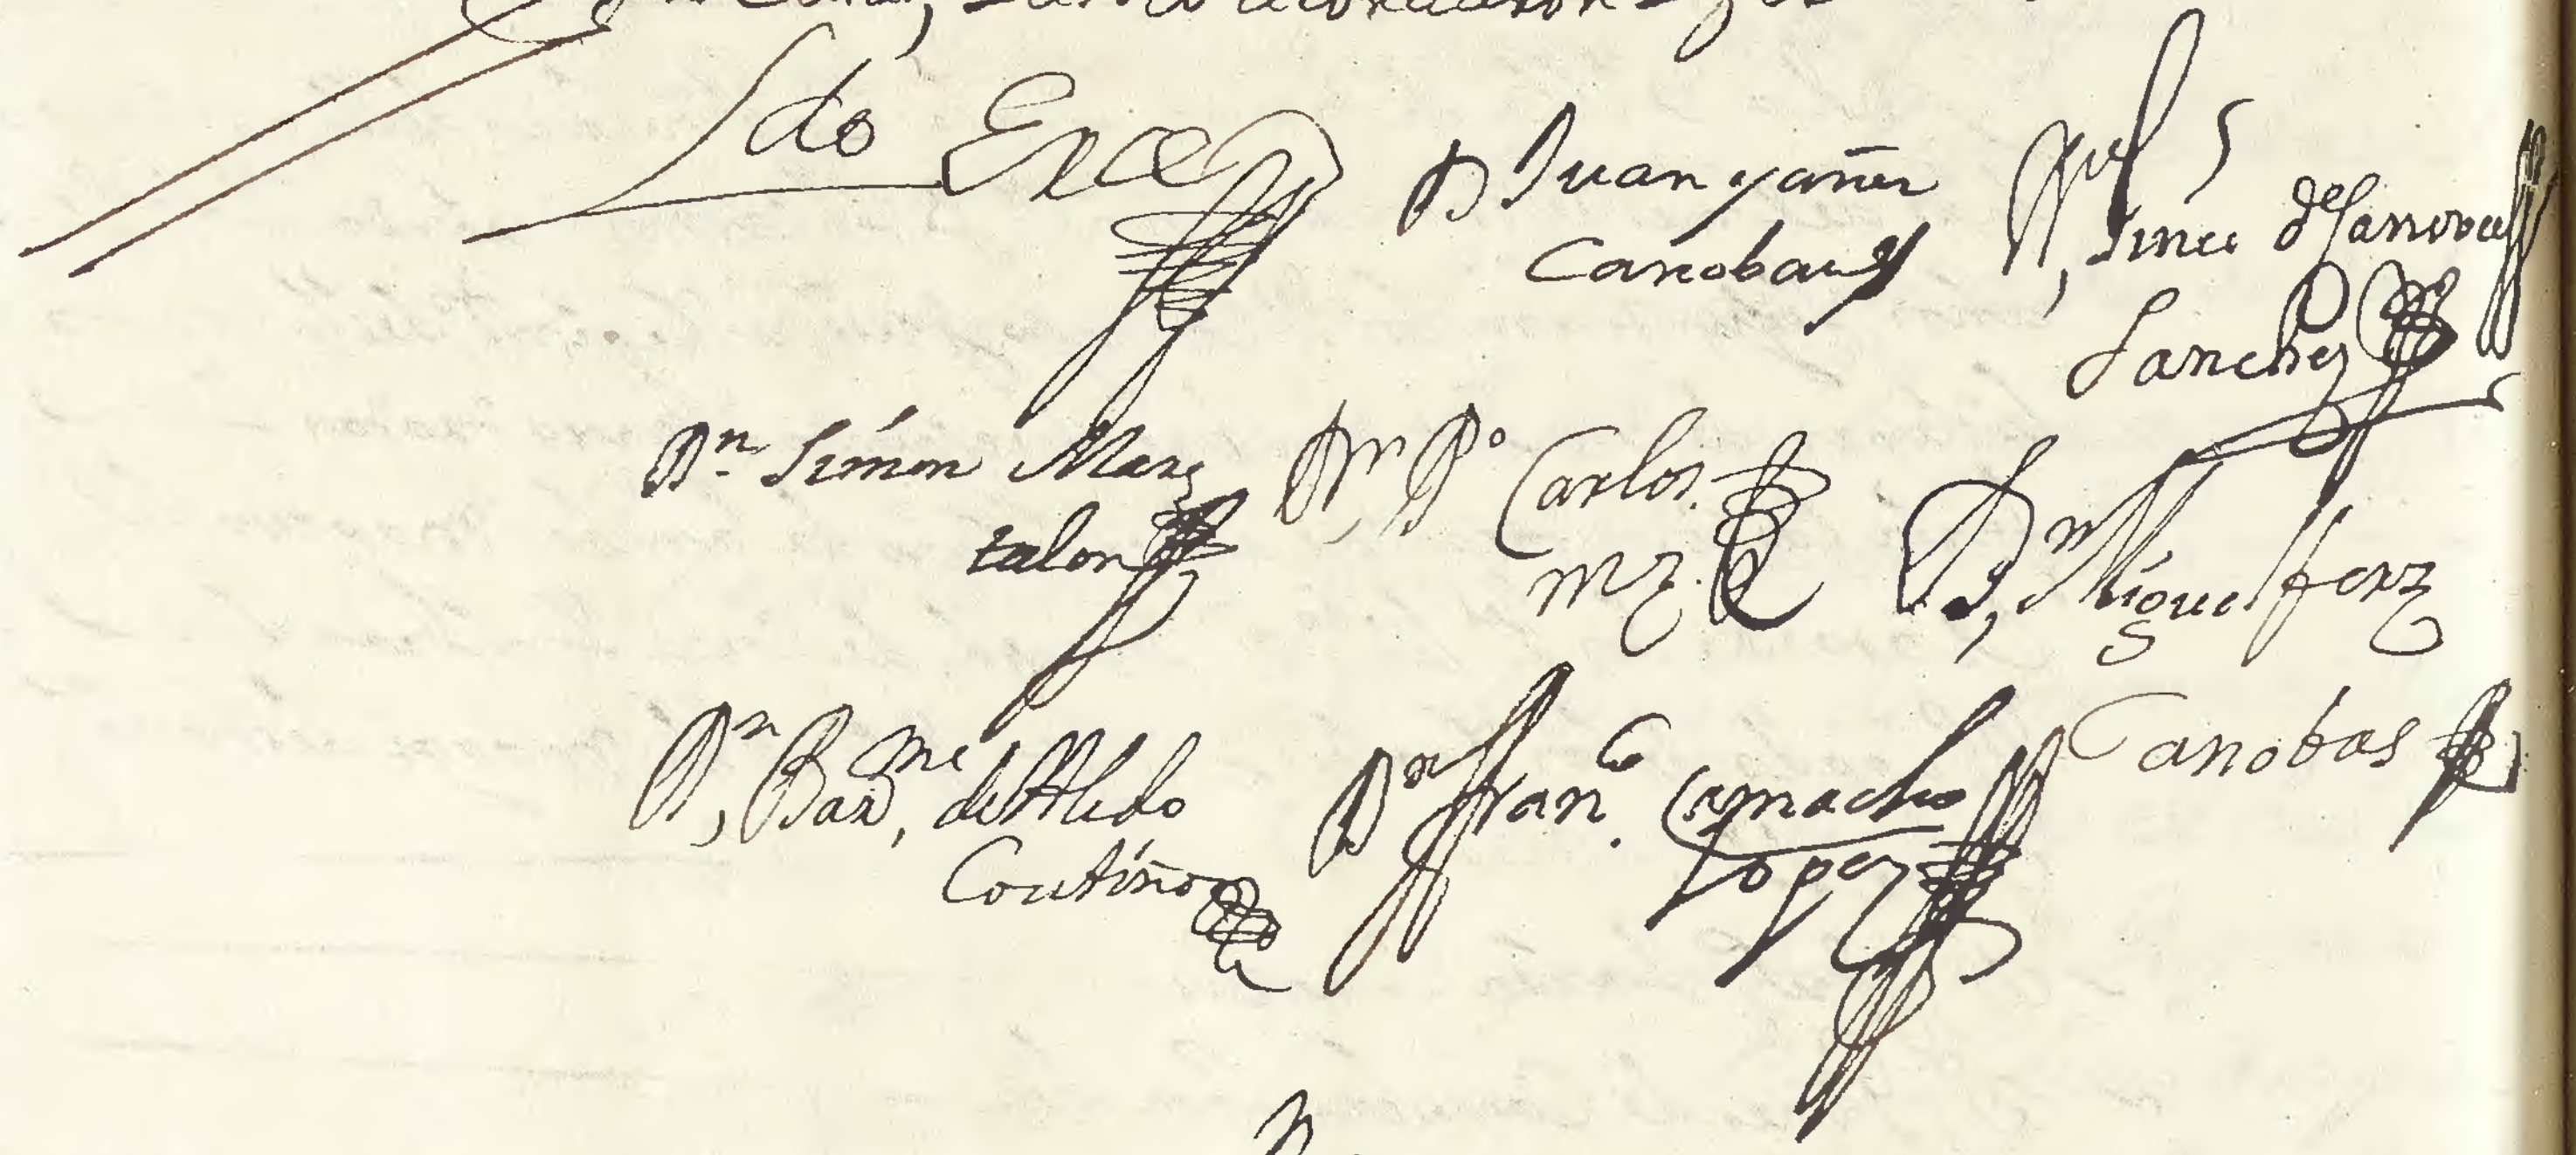 acordaron
Ldo Erce
D Juan yañez
Canobas
Gines de Sanoval
Sanchez
Dn Simon Marz
talon
Dn Po Carlos
mrz.
Dn Miguel ferz
Canobas
Dn Barme de Aledo
Coutiño
Dn Franco Camacho
Lopez